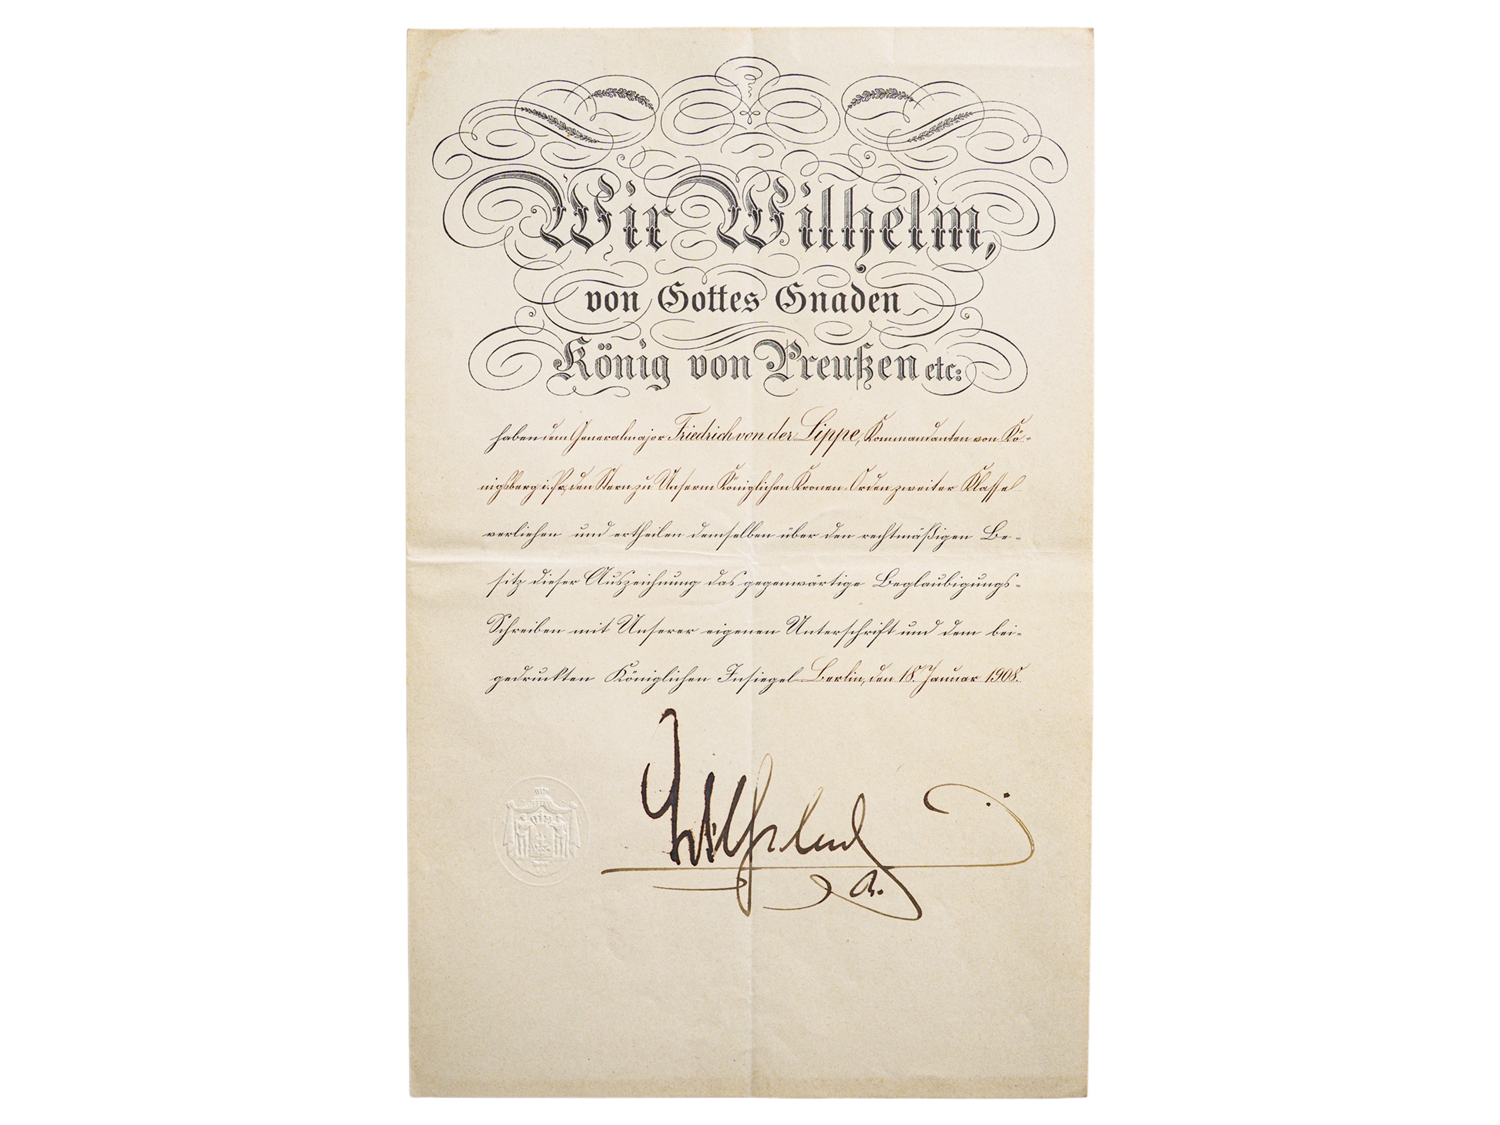 Wir Wilhelm,
von Gottes Gnaden
König von Preußen etc:
haben dem Generalmajor Friedrich von der Lippe, Kommandanten von Kö-
nigsberg i. Pr., den Stern zu Unserm Königlichen Kronen-Orden zweiter Klasse
verliehen und ertheilen demselben über den rechtmäßigen Be-
sitz dieser Auszeichnung das gegenwärtige Beglaubigungs-
Schreiben mit Unserer eigenen Unterschrift und dem bei-
gedruckten Königlichen Insiegel. Berlin, den 18. Januar 1908.
Wilhelm
R.